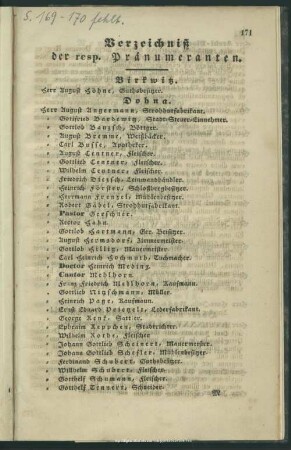 S. 169-170 fehlt.
171
Verzeichniß
der resp. Pränumeranten.
Birkwitz.
Herr August Höhne, Gutsbesitzer.
Dohna.
Herr August Angermann, Strohhutfabrikant.
„ Gottfried Bardewig, Stadt-Steuer-Einnehmer.
„ Gottlob Bautzsch, Böttger.
„ August Bremme, Weißbäcker.
„ Carl Busse, Apotheker.
„ August Centner, Fleischer.
„ Gottlieb Centner, Fleischer.
„ Wilhelm Centner, Fleischer.
„ Friedrich Dietsch, Leinwandhändler.
„ Heinrich Förster, Schloßbergbesitzer.
„ Herrmann Frenzel, Mühlenbesitzer.
„ Robert Gäbel, Strohhutfabrikant.
„ Pastor Greschner.
„ Hahn.
„ Gottlob Hartmann, Ger. Beisitzer.
„ August Hermsdorf, Zimmermeister.
„ Gottlob Hillig, Mauermeister.
„ Carl Heinrich Hochmuth, Tuchmacher.
„ Doctor Heinrich Meding.
„ Cantor Mehlhorn.
„ Franz Friedrich Mehlhorn, Kaufmann.
„ Gottlieb Nitzschmann, Müller.
„ Heinrich Page, Kaufmann.
„ Ernst Eduard Lederfabrikant.
„ George Renf, Sattler.
„ Ephraim Reppchen, Stadtrichter.
„ Wilhelm Rothe, Fleischer.
„ Johann Gottlieb Scheinert, Mauermeister.
„ Johann Gottlieb Schefler, Mühlenbesitzer.
„ Ferdinand Schubert, Gutsbesitzer.
„ Wilhelm Schubert, Fleischer.
„ Gotthelf Schumann, Fleischer.
„ Gotthelf Tennert, Schneider.
M